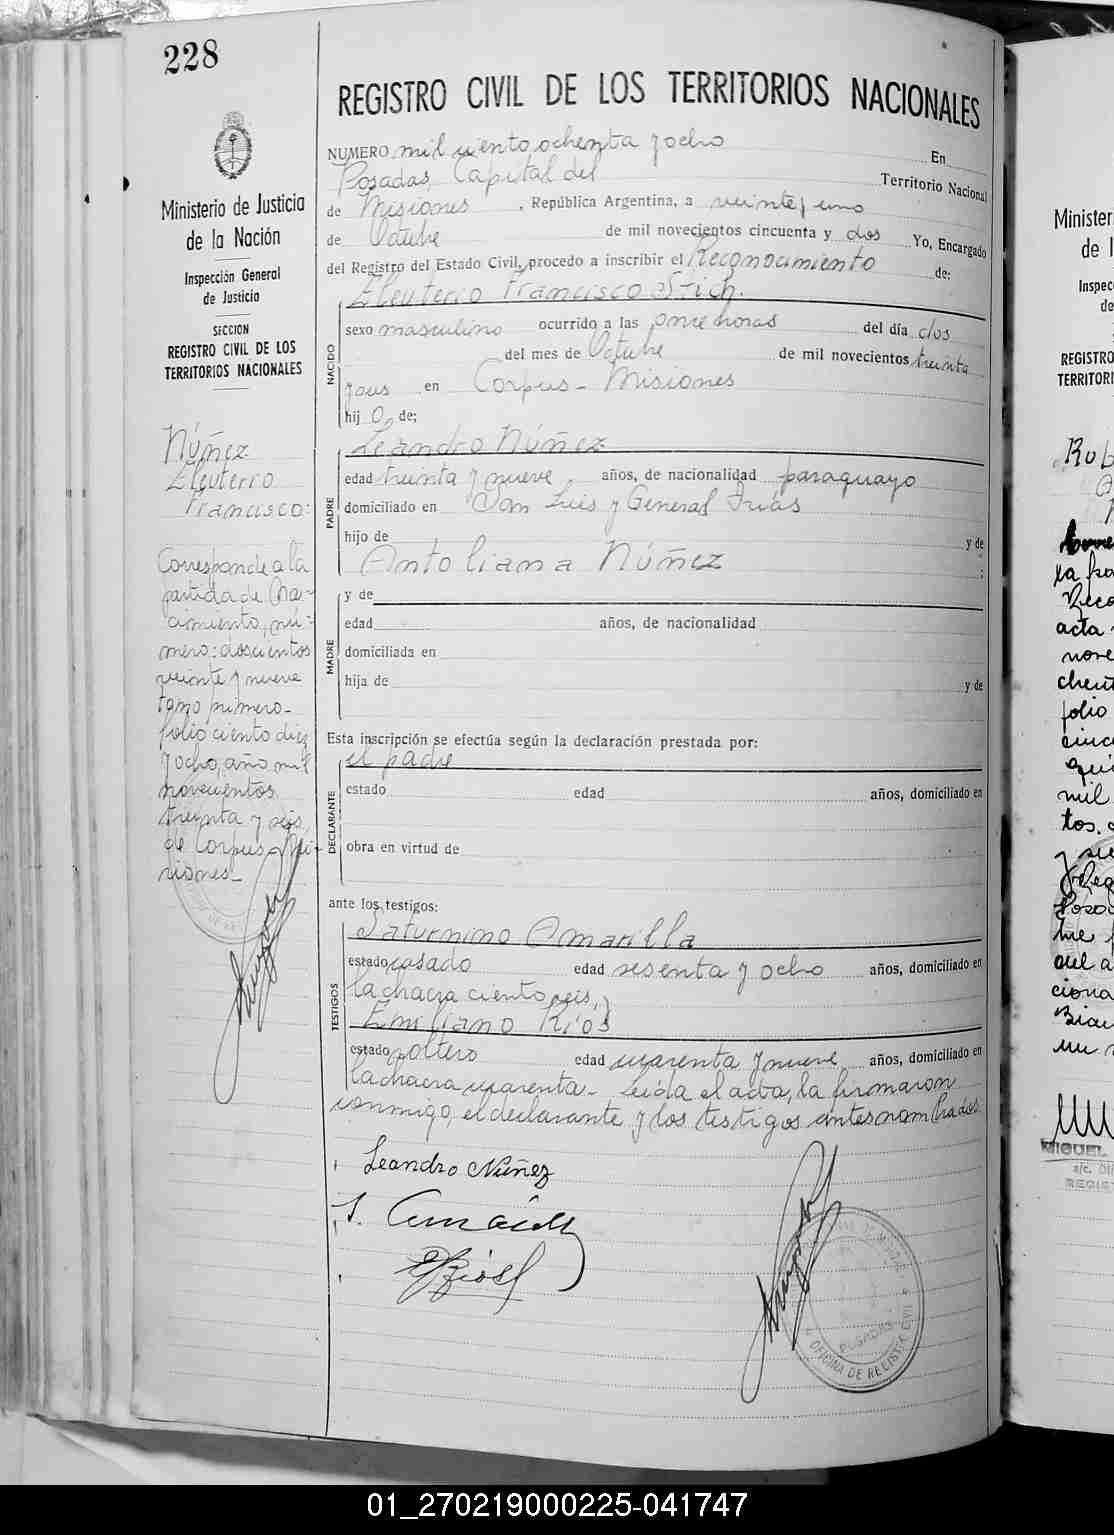 228
Ministerio de Justicia
de la Nación
Inspección General
de Justicia
SECCION
REGISTRO CIVIL DE LOS
TERRITORIOS NACIONALES
Núñez
Eleuterio
Francisco:
Corresponde a la
partida de Na-
cimiento, nú-
mero: doscientos
veinte y nueve
tomo primero-
folio ciento diez
y ocho, año mil
novecientos
treinta y seis,
de Corpus, Mi-
siones_
REGISTRO CIVIL DE LOS TERRITORIOS NACIONALES
NUMERO mil ciento ochenta y ocho En
Posadas, Capital del Territorio Nacional
de Misiones, República Argentina, a veinte y uno
de Octubre de mil novecientos cincuenta y dos Yo, Encargado
del Registro del Estado Civil, procedo a inscribir el Reconocimiento de:
Eleuterio Francisco
NACIDO
sexo masculino ocurrido a las once horas del día dos
del mes de Octubre de mil novecientos treinta
y seis en Corpus - Misiones
hijo de;
PADRE
Leandro Núñez
edad treinta y nueve años, de nacionalidad paraguayo
domiciliado en San Luis y General Frías
hijo de y de
Antoliana Núñez ;
MADRE
y de
edad años, de nacionalidad
domiciliada en
hija de y de
Esta inscripción se efectúa según la declaración prestada por:
DECLARANTE
el padre
estado edad años, domiciliado en
obra en virtud de
ante los testigos:
TESTIGOS
Saturnino Amarilla
estado casado edad sesenta y ocho años, domiciliado en
la chacra ciento seis,
Emiliano Ríos
estado soltero edad cuarenta y nueve años, domiciliado en
la chacra cuarenta - Leída el acta, la firmaron
conmigo, el declarante y los testigos antes nombrados
Leandro Núñez
S. Amarilla
E Rios
POSADAS
OFICINA DE REGISTRO CIVIL
Minister
de l
Inspec
de
REGISTRO
TERRITORI
Rub
la
acta
nove
folio
cinc
mil
tos.
MIGUEL
REGIST
01_270219000225-041747